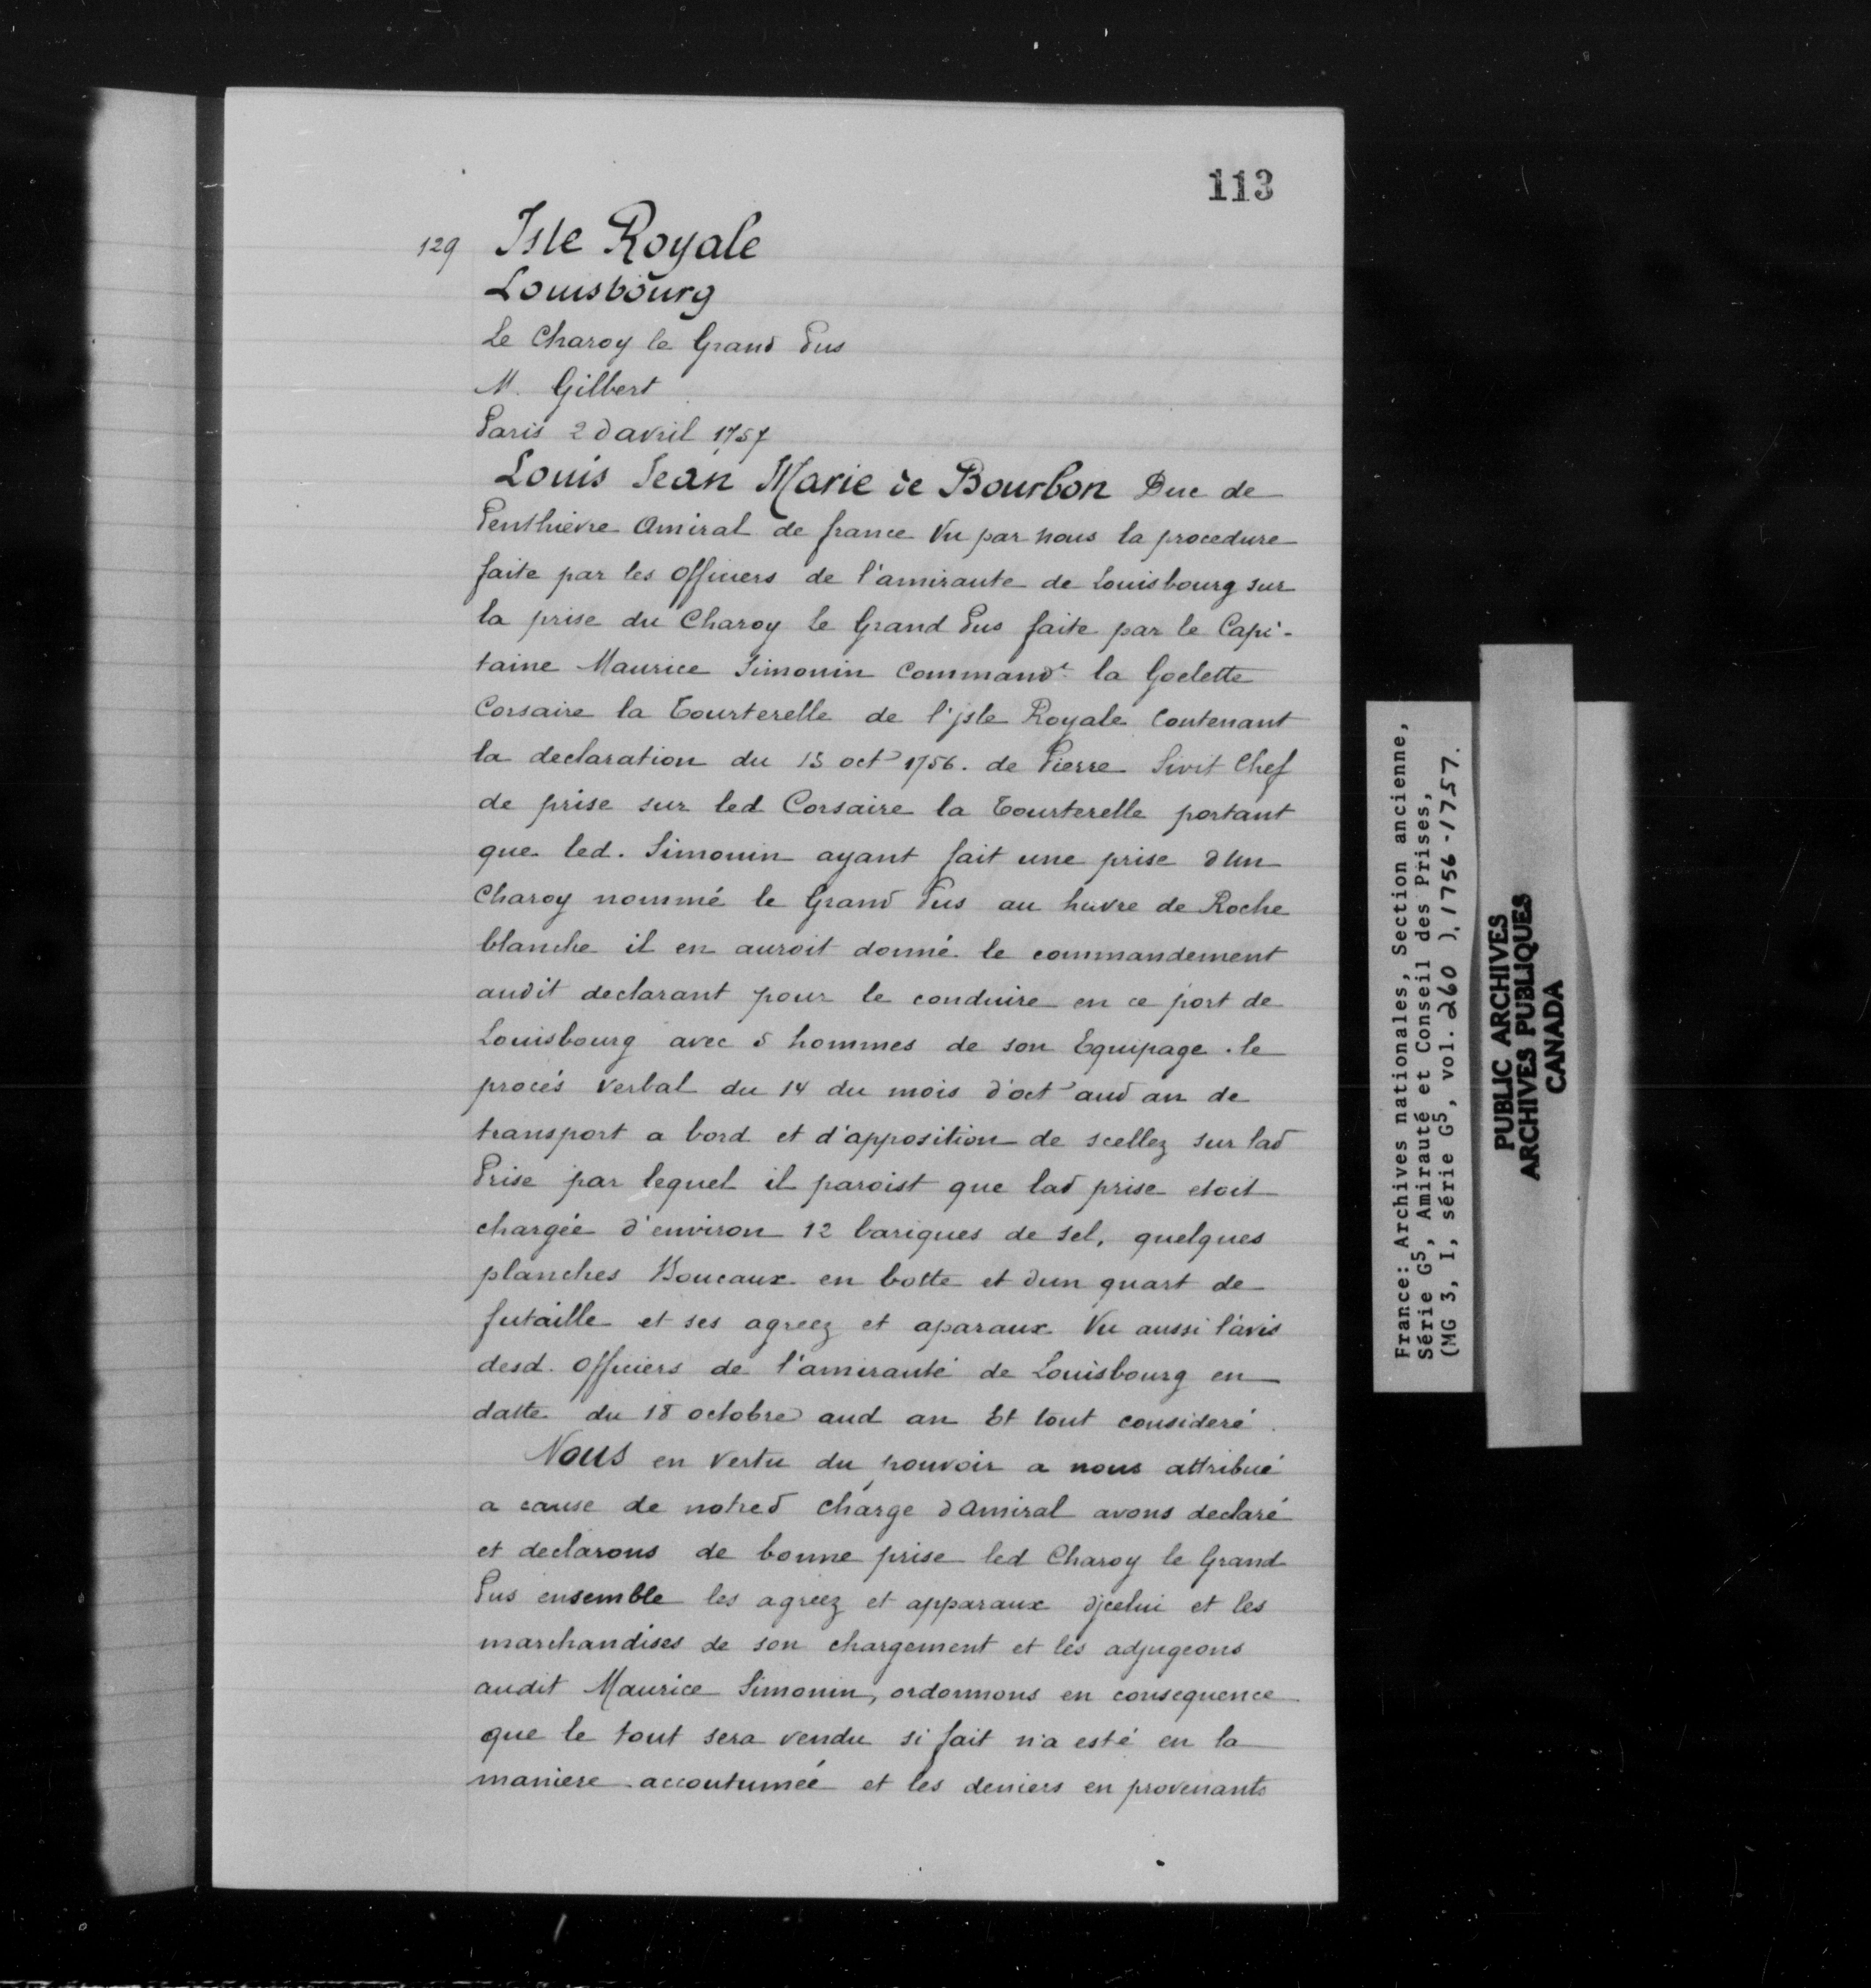 113
129 Isle Royale
Louisbourg
Le Charoy le Grand Pus
M. Gilbert
Paris 2 d avril 1757
Louis Jean Marie de Bourbon Duc de
Penthievre Amiral de france Vu par nous la procedure
faite par les Officiers de l'amiraute de Louisbourg sur
la prise du Charoy le Grand Pus faite par le Capi-
taine Maurice Simonin Command.t la Goelette
Corsaire la Tourterelle de l'jsle Royale Contenant
la declaration du 13 oct 1756. de Pierre Sivit Chef
de prise sur led Corsaire la Tourterelle portant
que led. Simonin ayant fait une prise d'un
Charoy nommé le Grand Pus au havre de Roche
blanche il en auroit donné le commandement
audit declarant pour le conduire en ce port de
Louisbourg avec 5 hommes de son Equipage. le
procés verbal du 14 du mois d'oct aud an de
transport a bord et d'apposition de scellez sur lad
Prise par lequel il paroist que lad prise etoit
chargée d'environ 12 bariques de sel, quelques
planches Boucaux en botte et d'un quart de
futaille et ses agreez et aparaux. Vu aussi l'avis
desd. Officiers de l'amirauté de Louisbourg en
datte du 18 octobre aud an Et tout consideré.
Nous en vertu du pouvoir a nous attribué
a cause de notred charge d'amiral avons declaré
et declarons de bonne prise led Charoy le Grand
Pus ensemble les agreez et apparaux d'jcelui et les
marchandises de son chargement et les adjugeons
audit Maurice Simonin, ordonnons en consequence
que le tout sera vendu si fait n'a esté en la
maniere accoutumée et les deniers en provenants
France: Archives nationales, Section ancienne,
Série G5, Amirauté et Conseil des Prises,
(MG 3, I, série G5, vol. 260 ), 1756-1757.
PUBLIC ARCHIVES
ARCHIVES PUBLIQUES
CANADA